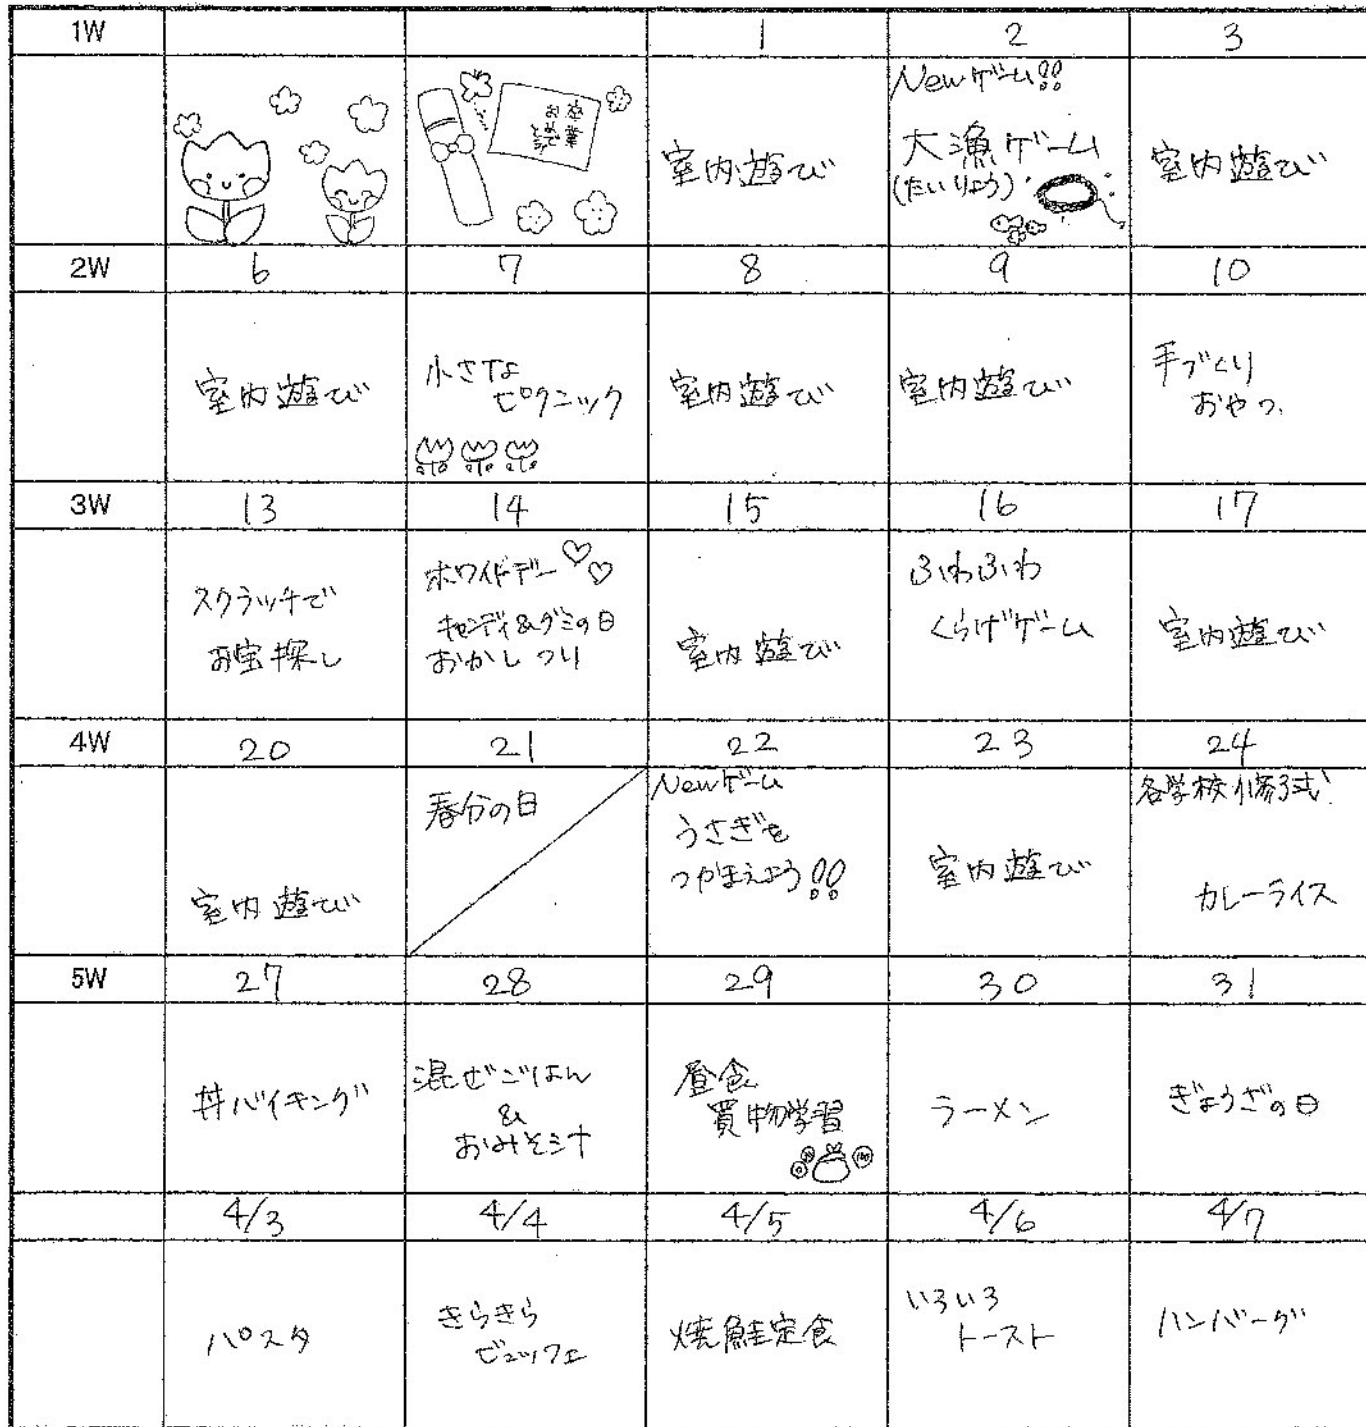 1W 1 2 3
卒業
お祝い
室内遊び
Newゲーム!!
大漁ゲーム
(たいりょう)
室内遊び
2W 6 7 8 9 10
室内遊び
小さな
ピクニック
室内遊び
室内遊び
手づくり
おやつ
3W 13 14 15 16 17
スクラッチで
お宝探し
ホワイトデー
キャンディ&グミの日
おかしつり
室内遊び
ふわふわ
くらげゲーム
室内遊び
4W 20 21 22 23 24
室内遊び
春分の日
Newゲーム
うさぎを
つかまえよう!!
室内遊び
各学校修了式
カレーライス
5W 27 28 29 30 31
丼バイキング
混ぜごはん
&
おみそ汁
昼食
買物学習
ラーメン
ぎょうざの日
4/3 4/4 4/5 4/6 4/7
パスタ
きらきら
ビュッフェ
焼鮭定食
いろいろ
トースト
ハンバーグ